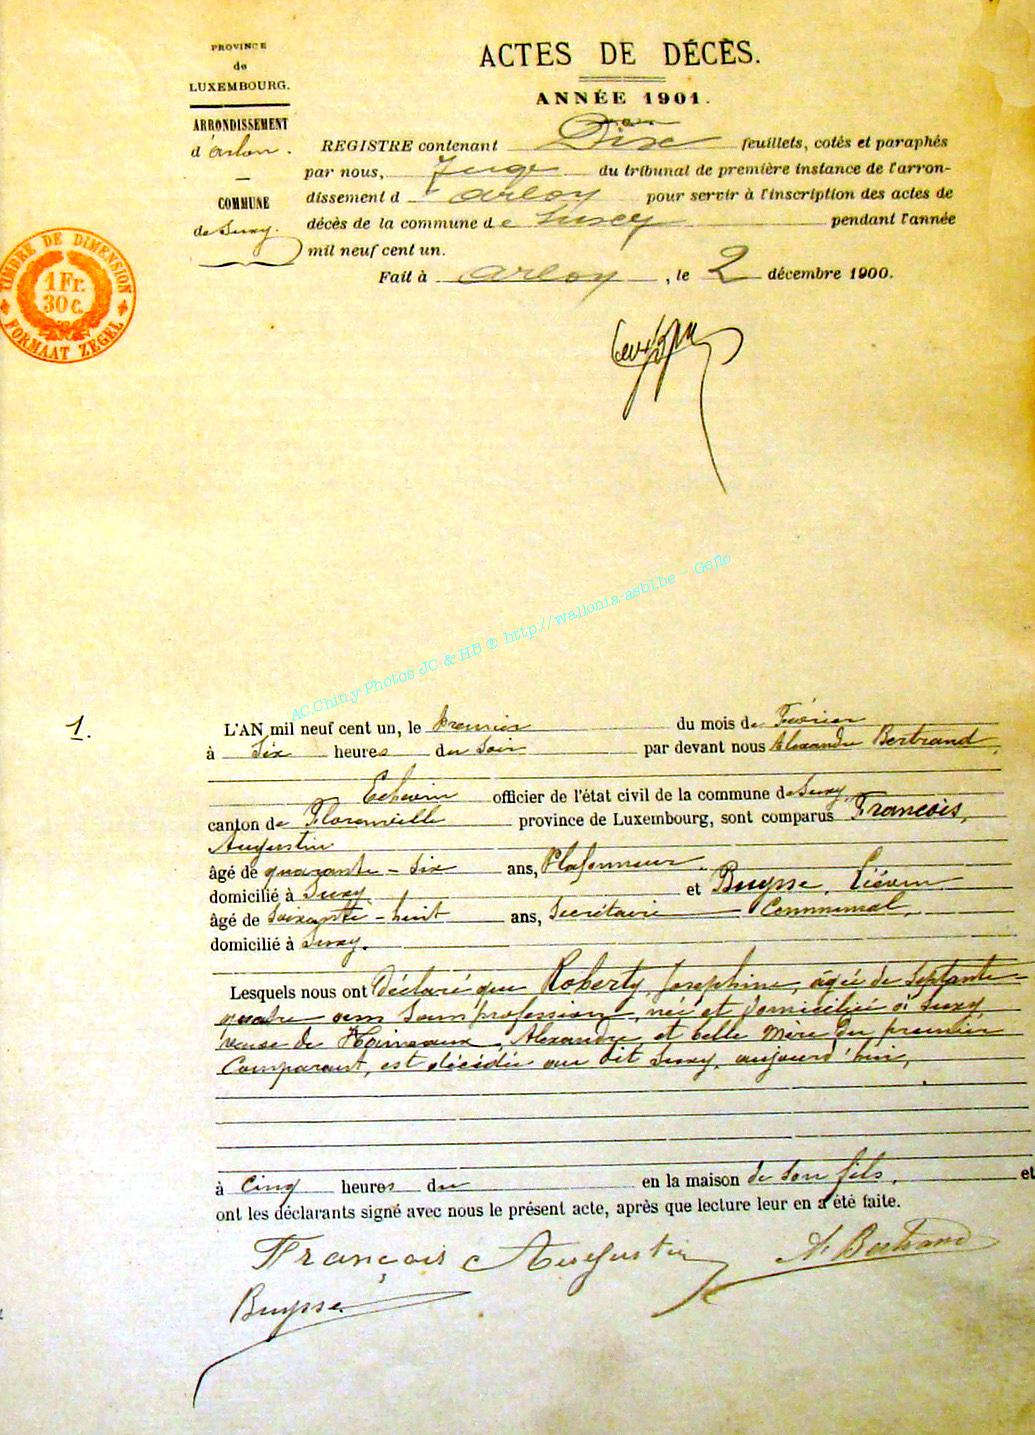 PROVINCE
de
LUXEMBOURG.
ARRONDISSEMENT
d'Arlon.
COMMUNE
de Suxy.
ACTES DE DÉCÈS.
ANNÉE 1901.
REGISTRE contenant Dix feuillets, cotés et paraphés
par nous, Juge du tribunal de première instance de l'arron-
dissement d Arlon pour servir à l'inscription des actes de
décès de la commune de Suxy pendant l'année
mil neuf cent un.
Fait à Arlon, le 2 décembre 1900.
TIMBRE DE DIMENSION
1 Fr.
30 c.
FORMAAT ZEGEL
AC.Chiny Photos JC & HB ® http://wallonia-asbl.be - Geflo
1.
L'AN mil neuf cent un, le Premier du mois de Février
à Six heures du Soir par devant nous Alexandre Bertrand,
Echevin officier de l'état civil de la commune de Suxy,
canton de Florenville province de Luxembourg, sont comparus François,
Augustin
âgé de quarante-six ans, Plafonneur
domicilié à Suxy et Buysse, Liévin
âgé de Soixante-huit ans, Secrétaire Communal,
domicilié à Suxy.
Lesquels nous ont Déclaré que Roberty, Josephine, âgée de Septante-
quatre ans Sans profession, née et domiciliée à Suxy
veuve de Hainseaux, Alexandre et belle mère du premier
Comparant, est décédée au dit Suxy, aujourd'hui,
à Cinq heures du en la maison de son fils, et
ont les déclarants signé avec nous le présent acte, après que lecture leur en a été faite.
François Augustin A Bertrand
Buysse